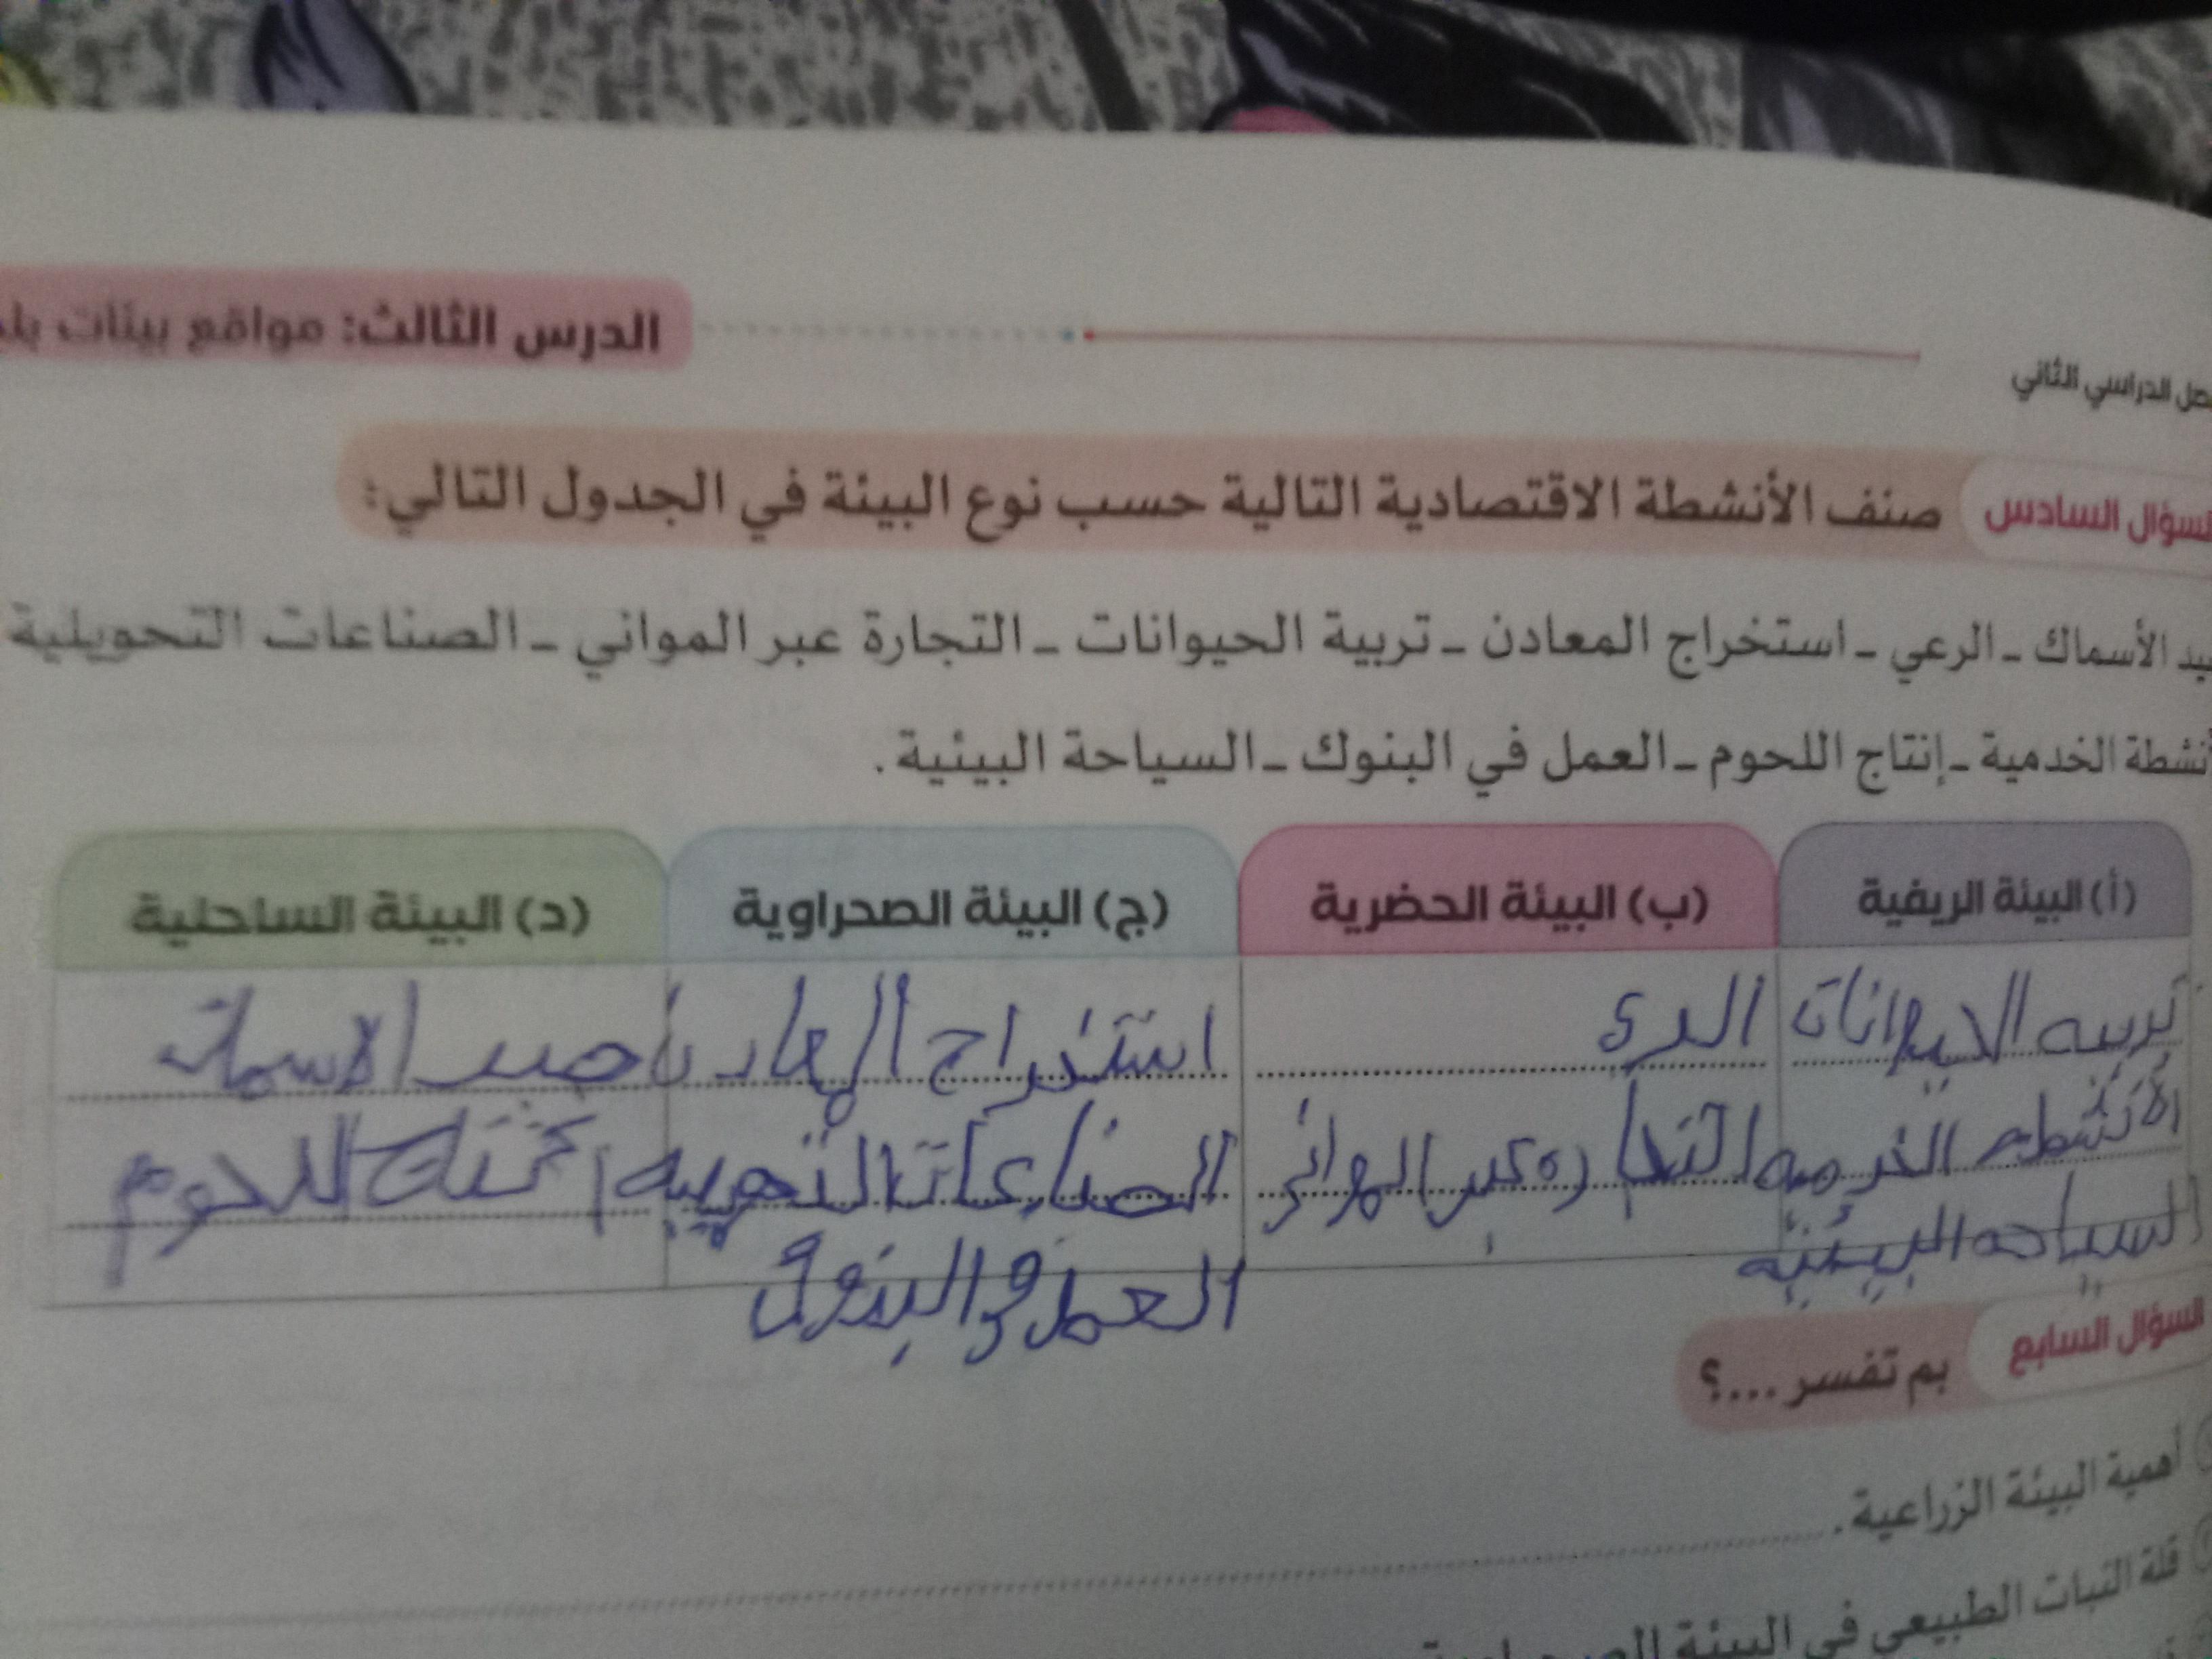 الدراسي الثاني
الدرس الثالث: مواقع بيئات
السؤال السادس صنف الأنشطة الاقتصادية التالية حسب نوع البيئة في الجدول التالي:
الأسماك - الرعي - استخراج المعادن - تربية الحيوانات - التجارة عبر المواني - الصناعات التحويلية
أنشطة الخدمية - إنتاج اللحوم - العمل في البنوك - السياحة البيئية.
(أ) البيئة الريفية (ب) البيئة الحضرية (ج) البيئة الصحراوية (د) البيئة الساحلية
تربيه الحيوانات استخراج المعادن صيد الاسماك
الأنشطه الخدميه التجاره عبر المواني الصناعات اللحوم
السياحه البيئيه العمل في البنوك
السؤال السابع بم تفسر ...؟
أهمية البيئة الزراعية.
قلة النبات الطبيعي في البيئة